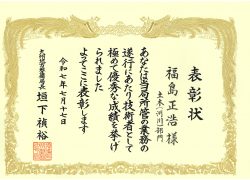 表彰状
土木(河川)部門
福島正浩様
あなたは当局所管の業務の
遂行にあたり技術者として
極めて優秀な成績を挙げ
られました
よってここに表彰します
令和七年七月十七日
九州地方整備局長
垣下禎裕